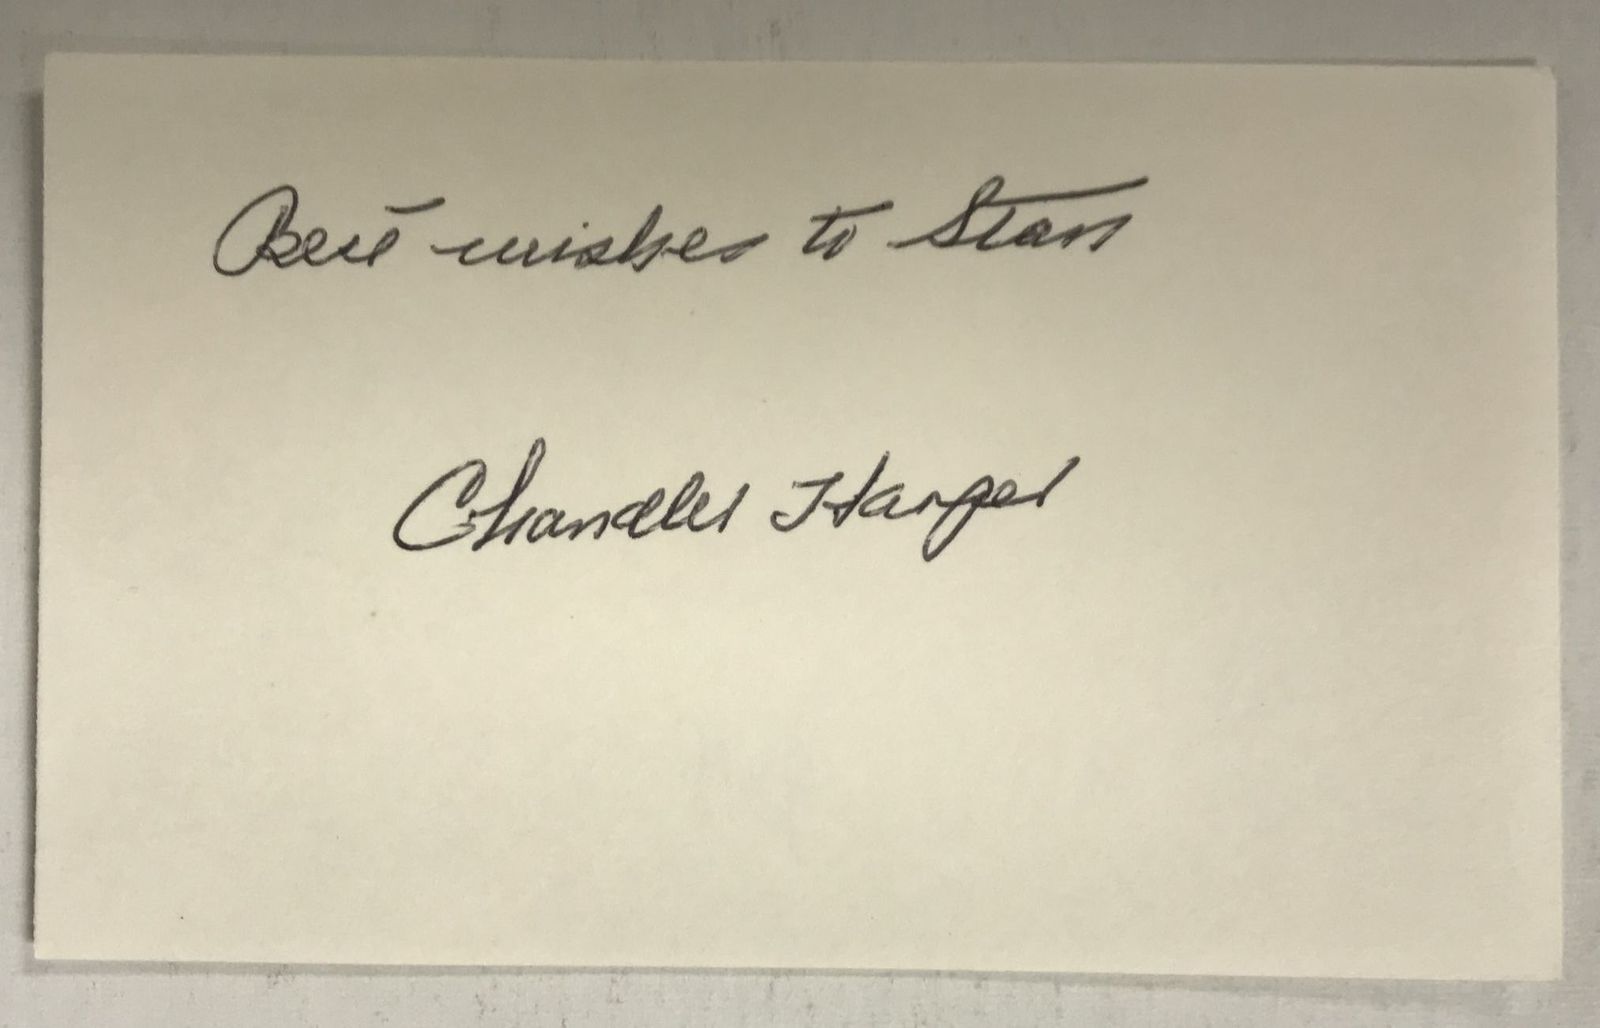 Best wishes to Stan
Chandler Harper